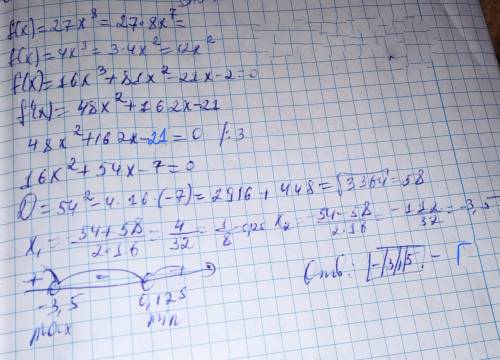 f(x)=27x⁸=27·8x⁷=
f(x)=4x³=3·4x²=12x²
f(x)=16x³+81x²-21x-2=0
f'(x)=48x²+162x-21
48x²+162x-21=0 /:3
16x²+54x-7=0
D=54²-4·16·(-7)=2916+448=√3364=58
x₁=-54+58/2·16=4/32=1/8=0,125 x₂=-54-58/2·16=-112/32=-3,5
+ - +
-3,5 0,125
max min
Отв: